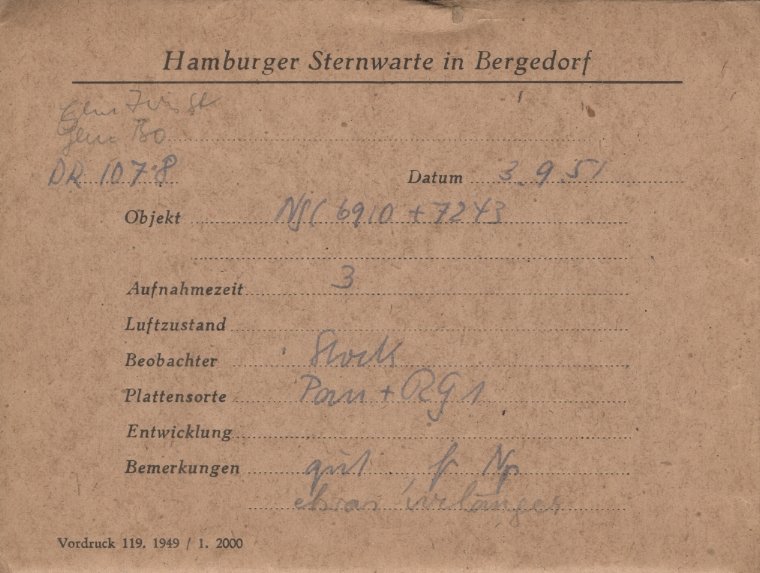 Hamburger Sternwarte in Bergedorf
DR 1078 Datum 3.9.51
Objekt NGC 6910 + 7243
Aufnahmezeit 3
Luftzustand
Beobachter Stock
Plattensorte Pan + RG 1
Entwicklung
Bemerkungen gut
etwas
Vordruck 119. 1949 / 1. 2000